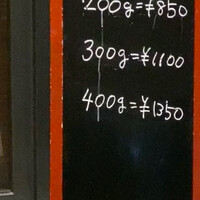 200g=¥850
300g=¥1100
400g=¥1350